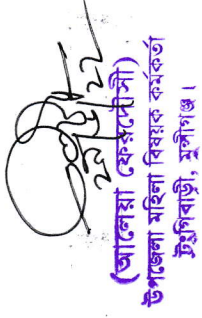 (আলেয়া ফেরদৌসী)
উপজেলা মহিলা বিষয়ক কর্মকর্তা
টংগিবাড়ী, মুন্সীগঞ্জ।